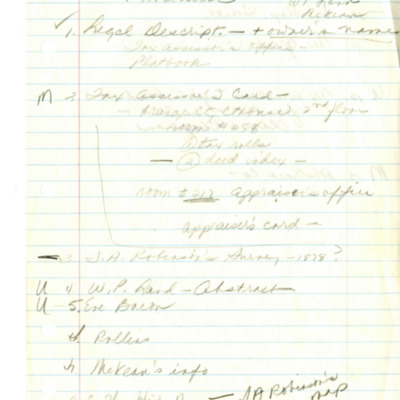 McKean
✓ 1. Legal Descript. — + owner's names
Tax Assessor's Office —
Platbook
M 2. Tax Assessor's Card —
Orange Cty Cthouse, 2nd floor
room #258
tax rolls
— deed index —
room #217 Appraiser's office
appraiser's card —
3. J.A. Robinson's Survey — 1878?
U 4. W.P. Rand — Abstract
U 5. Eve Bacon
Rollins
McKean's info
JA Robinson's
map